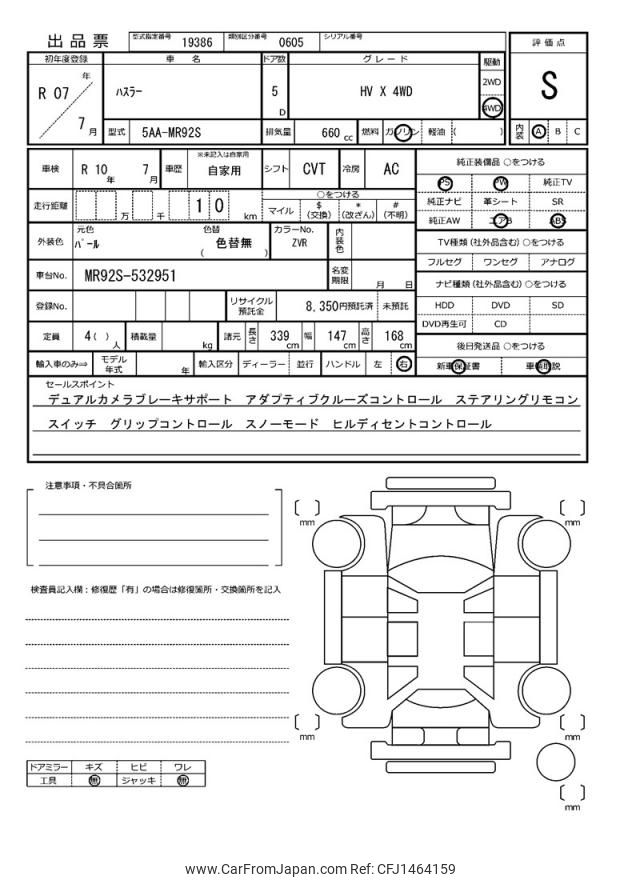 出品票
型式指定番号 19386 類別区分番号 0605 シリアル番号
評価点
S
内装 A B C
初年度登録 車名 ドア数 グレード 駆動
R 07 年 7 月
ハスラー 5 D HV X 4WD
2WD
4WD
型式 5AA-MR92S 排気量 660 cc 燃料 ガソリン 軽油 ( )
車検 R 10 年 7 月 車歴 ※未記入は自家用 自家用 シフト CVT 冷房 AC
走行距離 万 千 1 0 km
○をつける
マイル $ (交換) * (改ざん) # (不明)
外装色 元色 パール 色替 色替無 ( ) カラーNo. ZVR 内装色
車台No. MR92S-532951 名変期限 月 日
登録No. リサイクル預託金 8,350円預託済 未預託
定員 4( ) 人 積載量 kg 諸元 長さ 339 cm 幅 147 cm 高さ 168 cm
輸入車のみ⇒ モデル年式 年 輸入区分 ディーラー 並行 ハンドル 左 右
純正装備品 ○をつける
PS PW 純正TV
純正ナビ 革シート SR
純正AW エアB ABS
TV種類 (社外品含む) ○をつける
フルセグ ワンセグ アナログ
ナビ種類 (社外品含む) ○をつける
HDD DVD SD
DVD再生可 CD
後日発送品 ○をつける
新車保証書 車輌取説
セールスポイント
デュアルカメラブレーキサポート アダプティブクルーズコントロール ステアリングリモコン
スイッチ グリップコントロール スノーモード ヒルディセントコントロール
注意事項・不具合箇所
検査員記入欄：修復歴「有」の場合は修復箇所・交換箇所を記入
[ ] mm
[ ] mm
[ ] mm
[ ] mm
[ ] mm
ドアミラー キズ ヒビ ワレ
工具 無 ジャッキ 無
www.CarFromJapan.com Ref: CFJ1464159